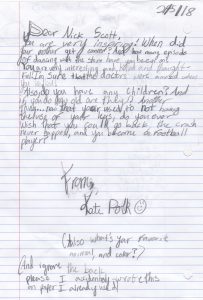 2/5/18
Dear Nick Scott,
You are very inspiring! When did
your mother get cancer? And how many episode
of dancing with the stars have you been on?
You are very interesting and kind and thought-
ful. I'm sure that the doctors were worried about
Also do you have any children? And
if you do how old are they? Another
thing... now that your used to not using
the use of your legs, do you ever
wish that you could go back, the crash
never happened, and you became a football
player?
From,
Kate Polk
(Also what's your favorite
animal, and color?)
And ignore the back
please I accidentally wrote this
on paper I already used